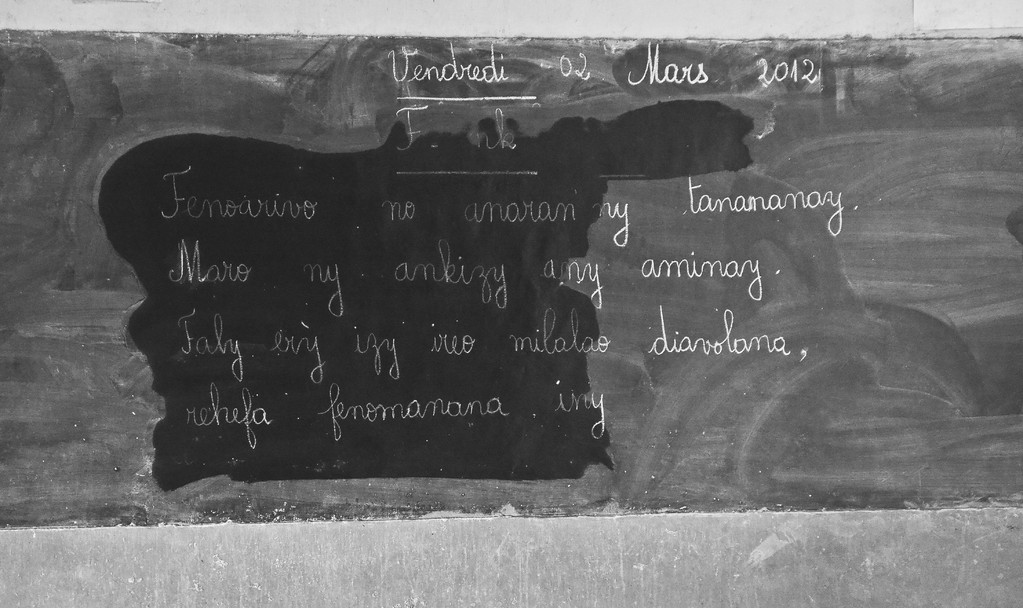 Vendredi 02 Mars 2012
F. nk
Fenoarivo no anaran'ny tanananay.
Maro ny ankizy any aminay.
Faly erỳ izy ireo milalao diavolana,
rehefa fenomanana iny